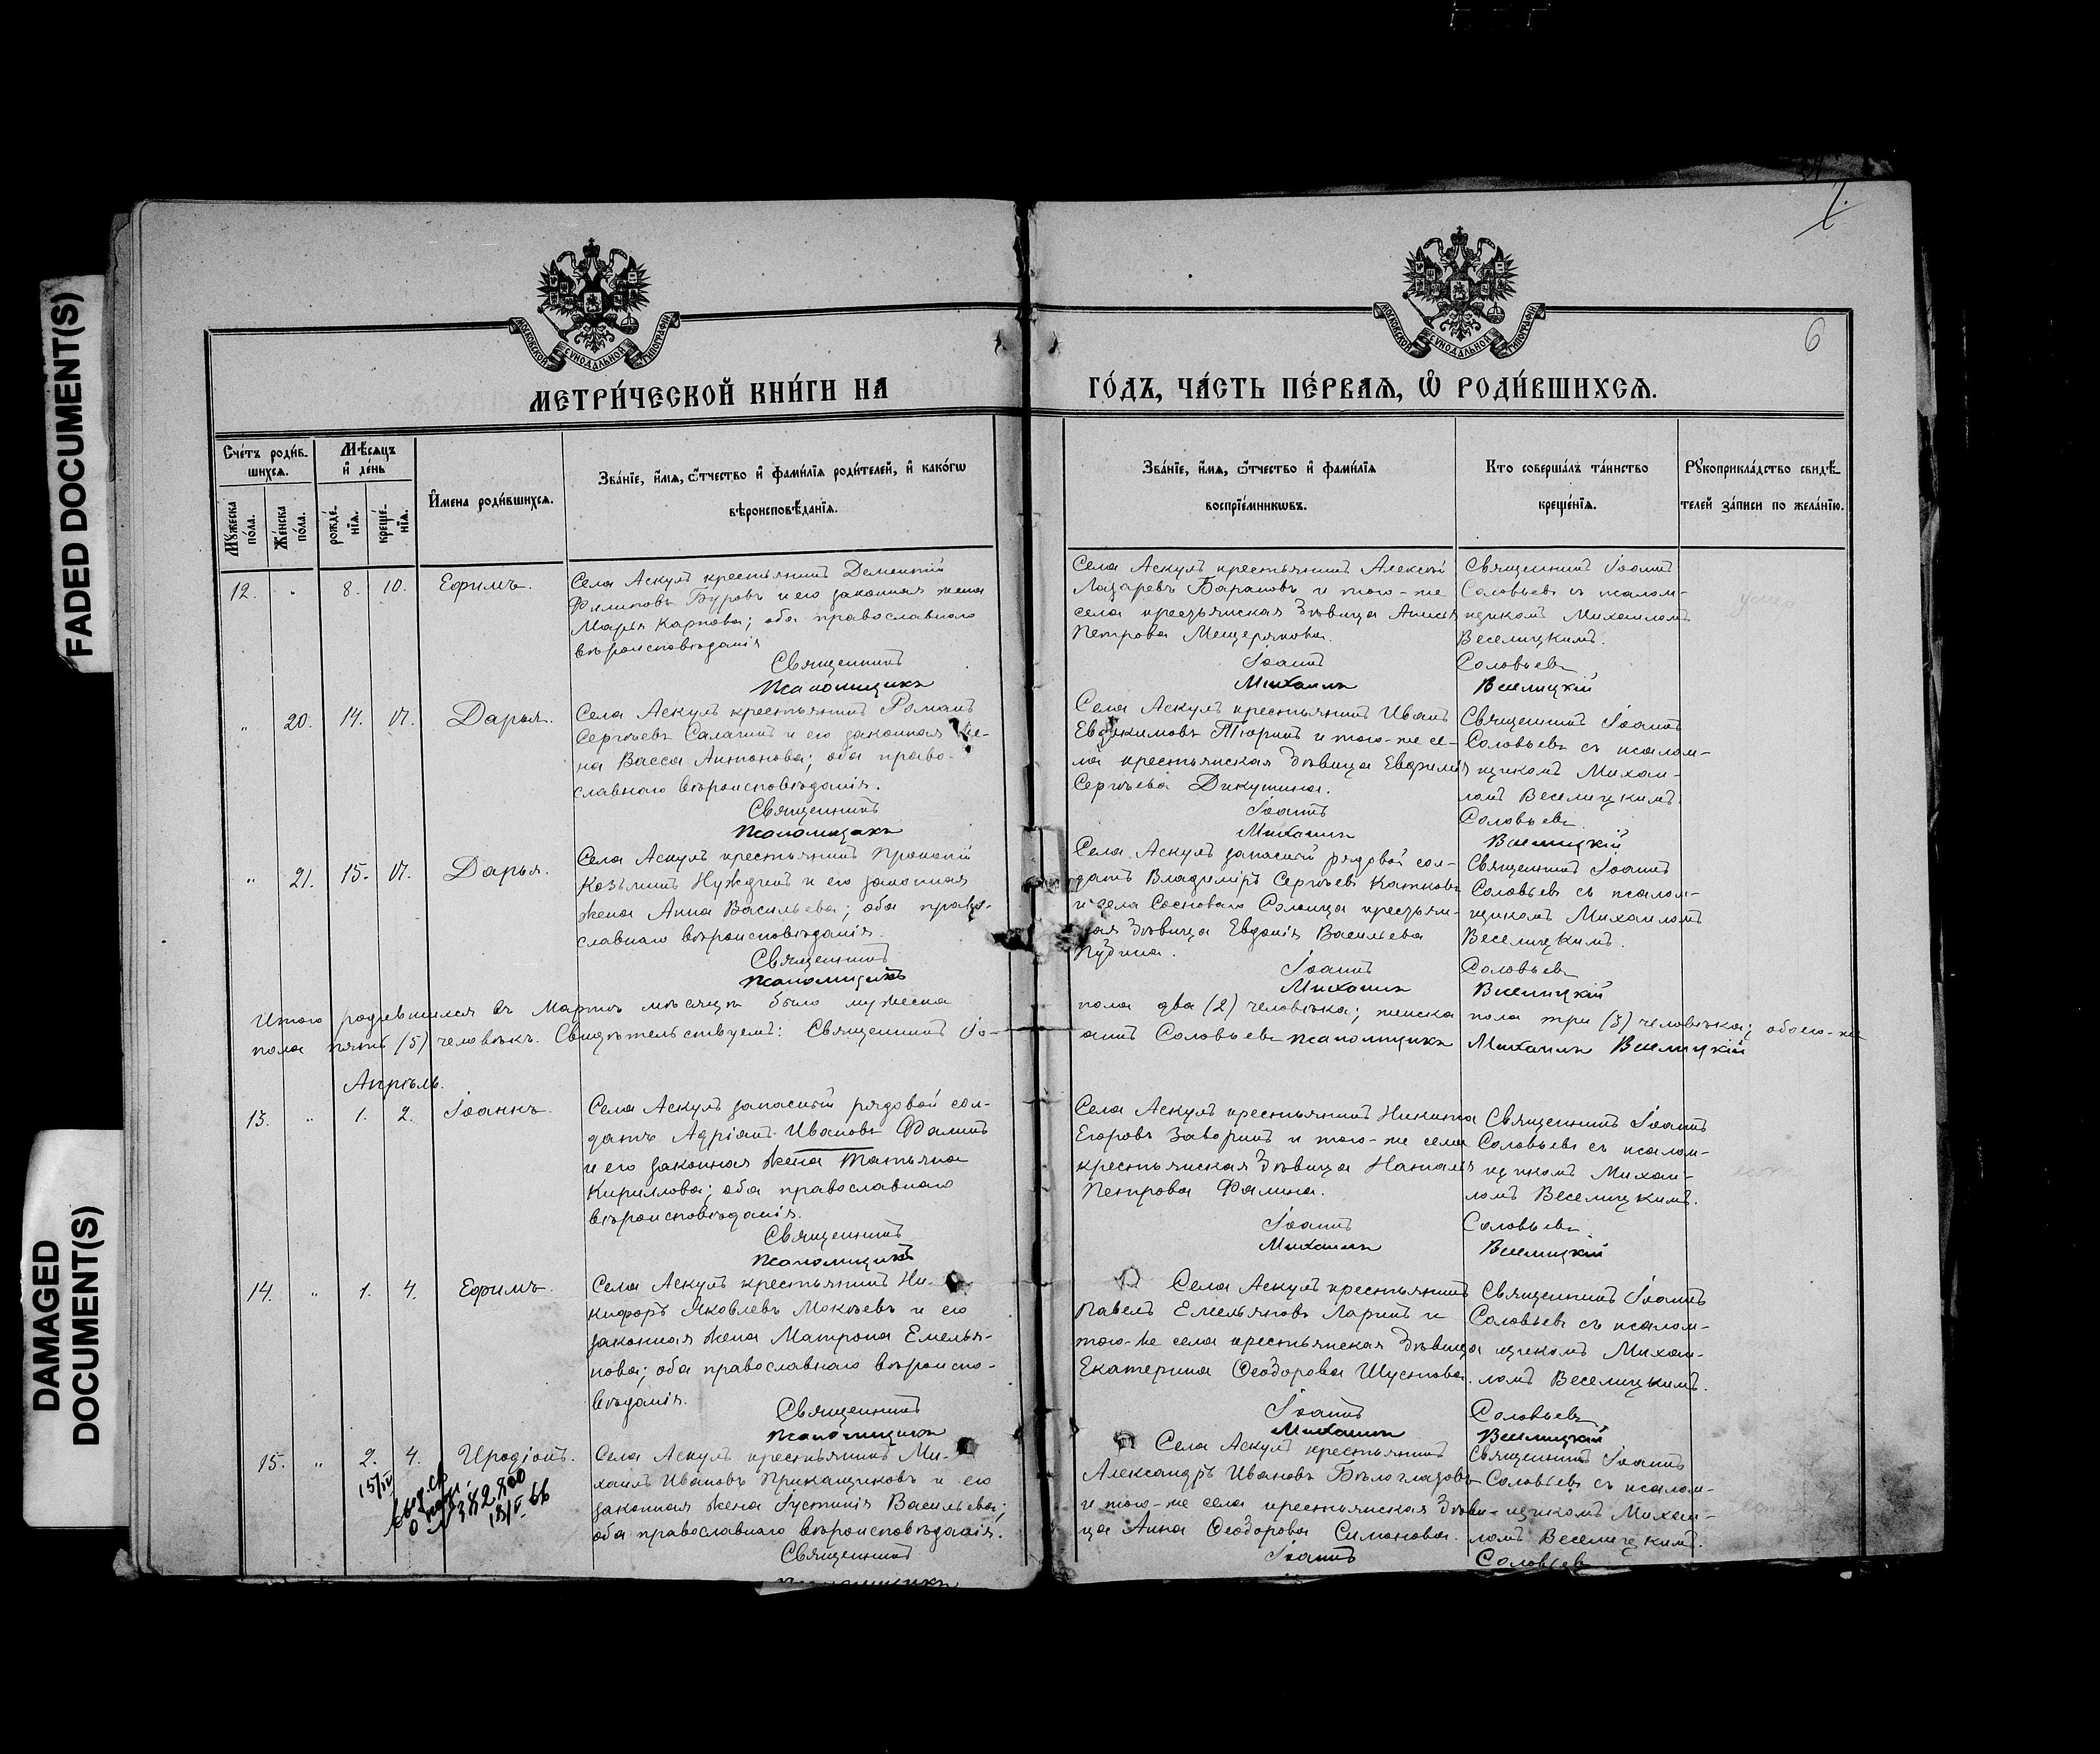 FADED DOCUMENT(S)
DAMAGED
DOCUMENT(S)
6
МОСКОВСКОЙ СѴНОДАЛЬНОЙ ТИПОГРАФІИ
МОСКОВСКОЙ СѴНОДАЛЬНОЙ ТИПОГРАФІИ
МЕТРИ́ЧЕСКОЙ КНИ́ГИ НА
ГО́ДЪ, ЧА́СТЬ ПЕ́РВАѦ, Ѡ҆ РОДИ́ВШИХСѦ.
Сче́тъ роди́в-
шихсѧ.
Мꙋ́жеска по́ла.
Же́нска по́ла.
Мѣ́сѧцъ
и҆ де́нь
рожде́-
нїѧ.
креще́-
нїѧ.
И҆мена роди́вшихсѧ.
Зва́нїе, и҆́мѧ, ѻ҆́тчество и҆ фами́лїѧ роди́телей, и҆ како́гѡ
вѣроисповѣ́данїѧ.
Зва́нїе, и҆́мѧ, ѻ҆́тчество и҆ фами́лїѧ
воспрїе́мникѡвъ.
Кто соверша́лъ та́инство
креще́нїѧ.
Рꙋкоприкла́дство свидѣ́-
телей за́писи по жела́нїю.
12. " 8. 10. Ефимъ.
Села Аскулъ крестьянинъ Дементій
Филиповъ Буровъ и его законная жена
Марья Карпова; оба православнаго
вѣроисповѣданія
Священникъ
Псаломщикъ
Села Аскулъ крестьянинъ Алексѣй
Лазаревъ Барановъ и того-же
села крестьянская дѣвица Анисья
Петрова Мещерякова.
Іоаннъ
Михаилъ
Священникъ Іоаннъ
Соловьевъ съ псалом-
щикомъ Михаиломъ
Веселицкимъ.
Соловьевъ
Веселицкій
" 20. 14. 17. Дарья.
Села Аскулъ крестьянинъ Романъ
Сергѣевъ Салагинъ и его законная же-
на Васса Антонова; оба право-
славнаго вѣроисповѣданія.
Священникъ
Псаломщикъ
Села Аскулъ крестьянинъ Иванъ
Евдокимовъ Тюринъ и того-же се-
ла крестьянская дѣвица Евфимія
Сергѣева Дикушина.
Іоаннъ
Михаилъ
Священникъ Іоаннъ
Соловьевъ съ псалом-
щикомъ Михаи-
ломъ Веселицкимъ.
Соловьевъ
Веселицкій
" 21. 15. 17. Дарья.
Села Аскулъ крестьянинъ Прокопій
Козьминъ Нуждинъ и его законная
жена Анна Васильева; оба право-
славнаго вѣроисповѣданія.
Священникъ
Псаломщикъ
Села Аскулъ запасный рядовой сол-
датъ Владиміръ Сергѣевъ Катковъ
и села Сосноваго Солонца крестьян-
кая дѣвица Евдокія Васильева
Іоаннъ
Михаилъ
Священникъ Іоаннъ
Соловьевъ съ псалом-
щикомъ Михаиломъ
Веселицкимъ.
Соловьевъ
Веселицкій
Итого родившихся въ Мартѣ мѣсяцѣ было мужеска пола два (2) человѣка; женска пола три (3) человѣка; обоего-же
пола пять (5) человѣкъ. Свидѣтельствуемъ: Священникъ Іо-аннъ Соловьевъ псаломщикъ Михаилъ Веселицкій
Апрѣль.
13. " 1. 2. Іоаннъ.
Села Аскулъ запасный рядовой сол-
датъ Адріанъ Ивановъ Фалинъ
и его законная жена Татьяна
Кириллова; оба православнаго
вѣроисповѣданія.
Священникъ
Псаломщикъ
Села Аскулъ крестьянинъ Никита
Егоровъ Заворинъ и того-же села
крестьянская дѣвица Наталія
Петрова Фалина.
Іоаннъ
Михаилъ
Священникъ Іоаннъ
Соловьевъ съ псалом-
щикомъ Михаи-
ломъ Веселицкимъ.
Соловьевъ
Веселицкій
14. " 1. 4. Ефимъ.
Села Аскулъ крестьянинъ Ни-
кифоръ Яковлевъ Мокѣевъ и его
законная жена Матрона Емелья-
нова; оба православнаго вѣроиспо-
вѣданія.
Священникъ
Псаломщикъ
Села Аскулъ крестьянинъ
Павелъ Емельяновъ Ларинъ и
того-же села крестьянская дѣвица
Екатерина Ѳеодорова Шустова.
Іоаннъ
Михаилъ
Священникъ Іоаннъ
Соловьевъ съ псалом-
щикомъ Михаи-
ломъ Веселицкимъ.
Соловьевъ
Веселицкій
15. " 2. 4. Иродіонъ.
15/IV
выд. св
о рожд.
№ 382800
15/IV-66
Села Аскулъ крестьянинъ Ми-
хаилъ Ивановъ Приказщиковъ и его
законная жена Іустинія Васильева;
оба православнаго вѣроисповѣданія.
Священникъ
Псаломщикъ
Села Аскулъ крестьянинъ
Александръ Ивановъ Бѣлоглазовъ
и того-же села крестьянская дѣви-
ца Анна Ѳеодорова Симонова.
Іоаннъ
Священникъ Іоаннъ
Соловьевъ съ псалом-
щикомъ Михаи-
ломъ Веселицкимъ.
Соловьевъ